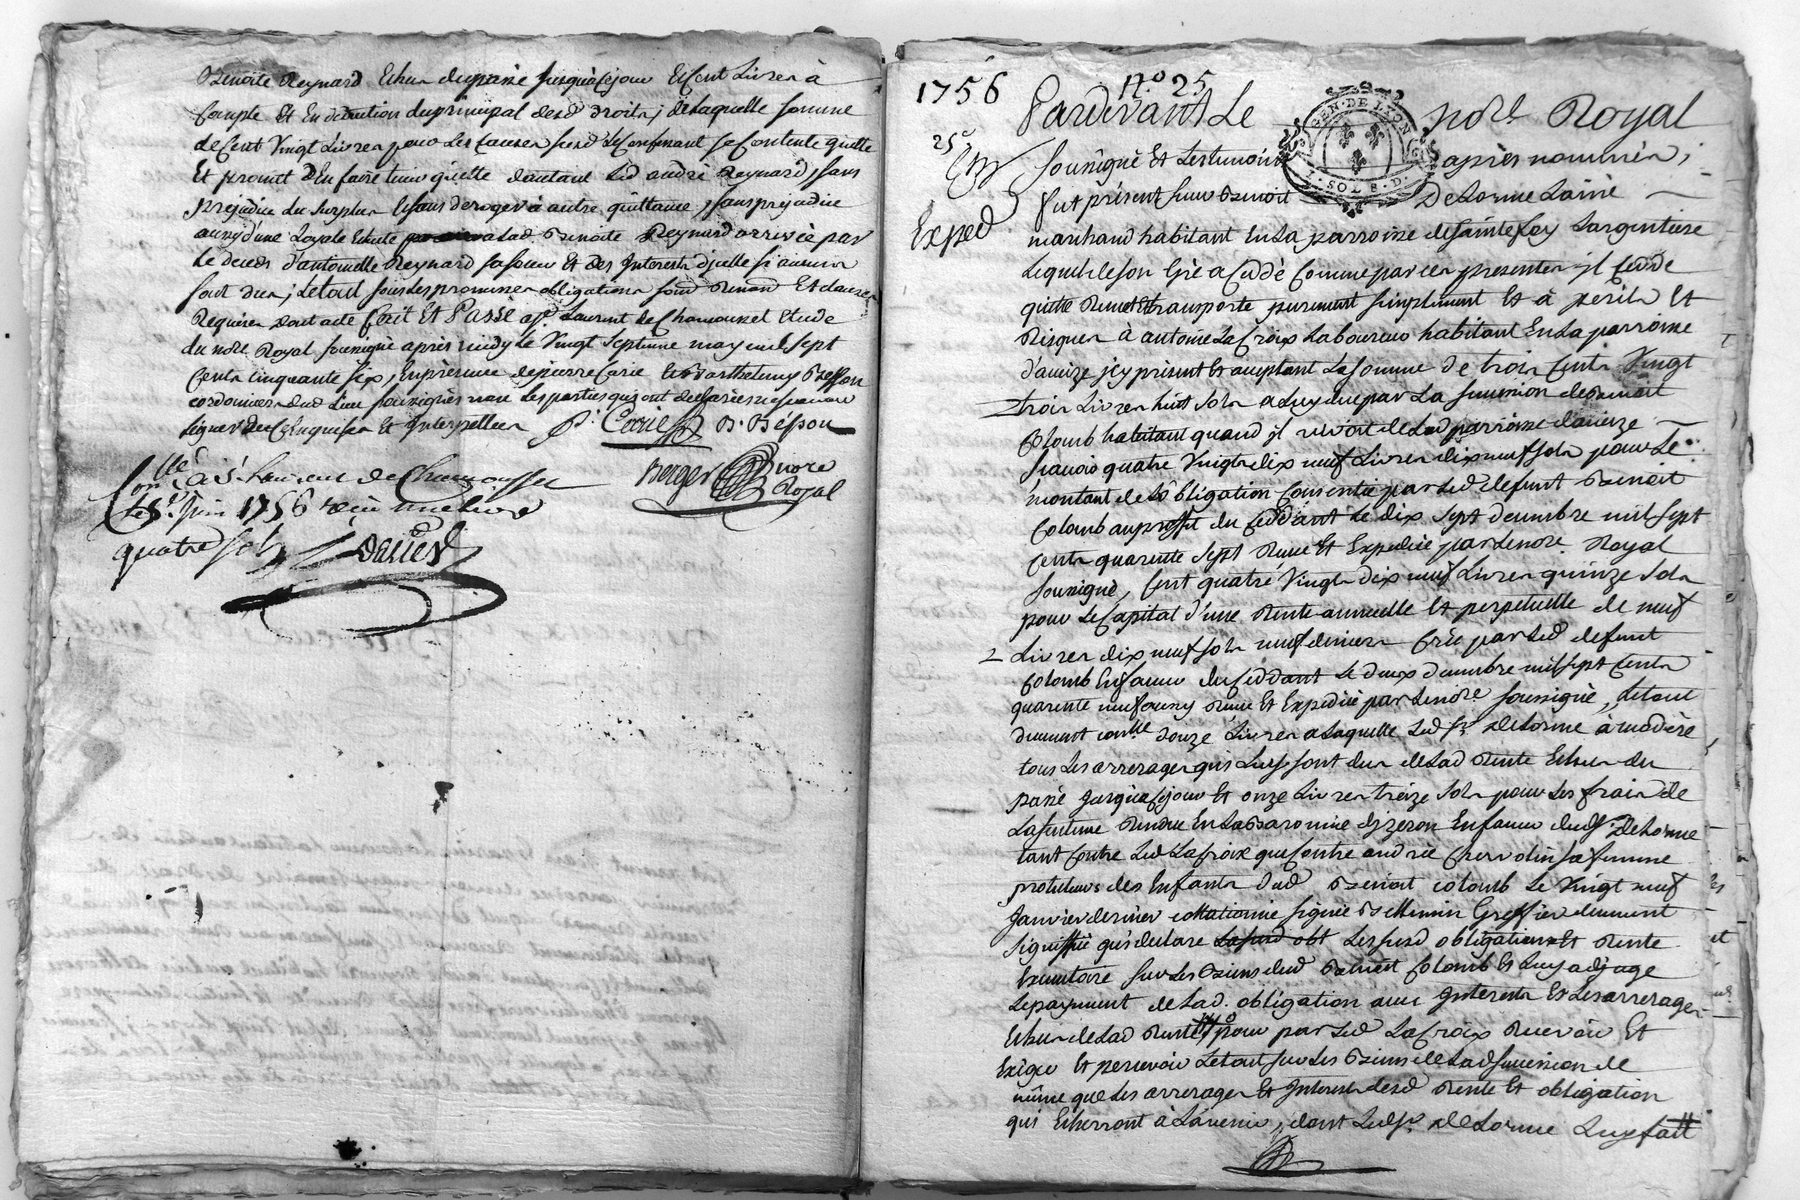 Benoite Reynard Echus du passé jusqu'à ce jour Et Cent Livres à
Compte Et En deduction du principal desd droits, de laquelle somme
de Cent Vingt Livres pour Les Causes susd Le Confessant se Contente quitte
Et promet d'En faire tenir quitte d'autant Led andré Reynard, sans
prejudice du surplus Et sans deroger à autre quittance, sans prejudice
aussy d'une Loyale Echute a Lad. Benoite Reynard arrivée par
Le deces d'antoinette Reynard sa soeur Et des Interests d'jcelle si aucuns
sont dus; Le tout sous Les promesses obligations soum Renon Et clauses
Requises dont acte fait Et Passé a St Laurent de Chamousset Etude
du nore Royal soussigné après midy Le Vingt Septieme may mil sept
Cents Cinquante Six, En presence de pierre Corie Et Barthelemy Besson
cordonniers dud Lieu soussignés non Les parties qui ont declaré ne scavoir
signer de ce Enquises Et Interpellées P. Corie B. Béson
Conllé a St Laurent de Chamousset Berger nore Royal
Le 5e Juin 1756 Reçu une livre
quatre sols
1756 N.o 25
GEN. DE LYON
Pardevant Le nore Royal
25e Soussigné Et Les temoins après nommés;
fut present sieur Benoit Delorme L'ainé
Exped marchand habitant En La parroisse de Sainte foy L'argentiere
Lequel de son Gré a Cedé Comme par ces presentes jl Cede
quitte Remet Et transporte purement simplement Et à perils Et
Risques à antoine La Croix Laboureur habitant En La parroisse
d'aveize jcy present Et acceptant La somme de trois Cents Vingt
trois Livres huit sols a Luy due par La succession de Benoit
Colomb habitant quand jl vivoit de Lad parroisse d'aveize
scavoir quatre Vingts dix neuf Livres dix neuf sols pour Le
montant de L'obligation Consentie par Led deffunt Benoit
Colomb au proffit du Ceddant Le dix Sept decembre mil sept
Cents quarente Sept Reçue Et Expediée par Le nore Royal
soussigné, Cent quatre Vingts dix neuf Livres quinze sols
pour Le Capital d'une Rente annuelle Et perpetuelle de neuf
Livres dix neuf sols neuf deniers Créé par Led deffunt
Colomb En faveur du Ceddant Le deux decembre mil sept Cents
quarente neuf aussy Reçue Et Expediée par Le nore soussigné, Le tout
duement conllé douze Livres a Laquelle Led Sr Delorme à moderé
tous Les arrerages qui Luy sont dus de Lad Rente Echus du
passé Jusqu'a ce jour Et onze Livres treize sols pour Les frais de
La sentence Rendue En La Baronnie d'yzeron En faveur dudSr Delorme
tant Contre Led La Croix que Contre andrée Chervolin sa femme
protuteurs des Enfants dud Benoit Colomb Le Vingt neuf
Janvier dernier collationnée signée Greffier duement
signiffié qui declare Les susd obligation Et Rente
Executoire sur Les Biens dud Benoit Colomb Et Luy adjuge
Le payement de Lad. obligation avec Interests Et Les arrerages
Echus de Lad Rente pour par Led La Croix Recevoir Et
Exiger Et percevoir Le tout sur Les Biens de Lad succession de
même que Les arrerages Et Interests desd Rente Et obligation
qui Echerront à L'avenir, dont LedSr Delorme Luy fait